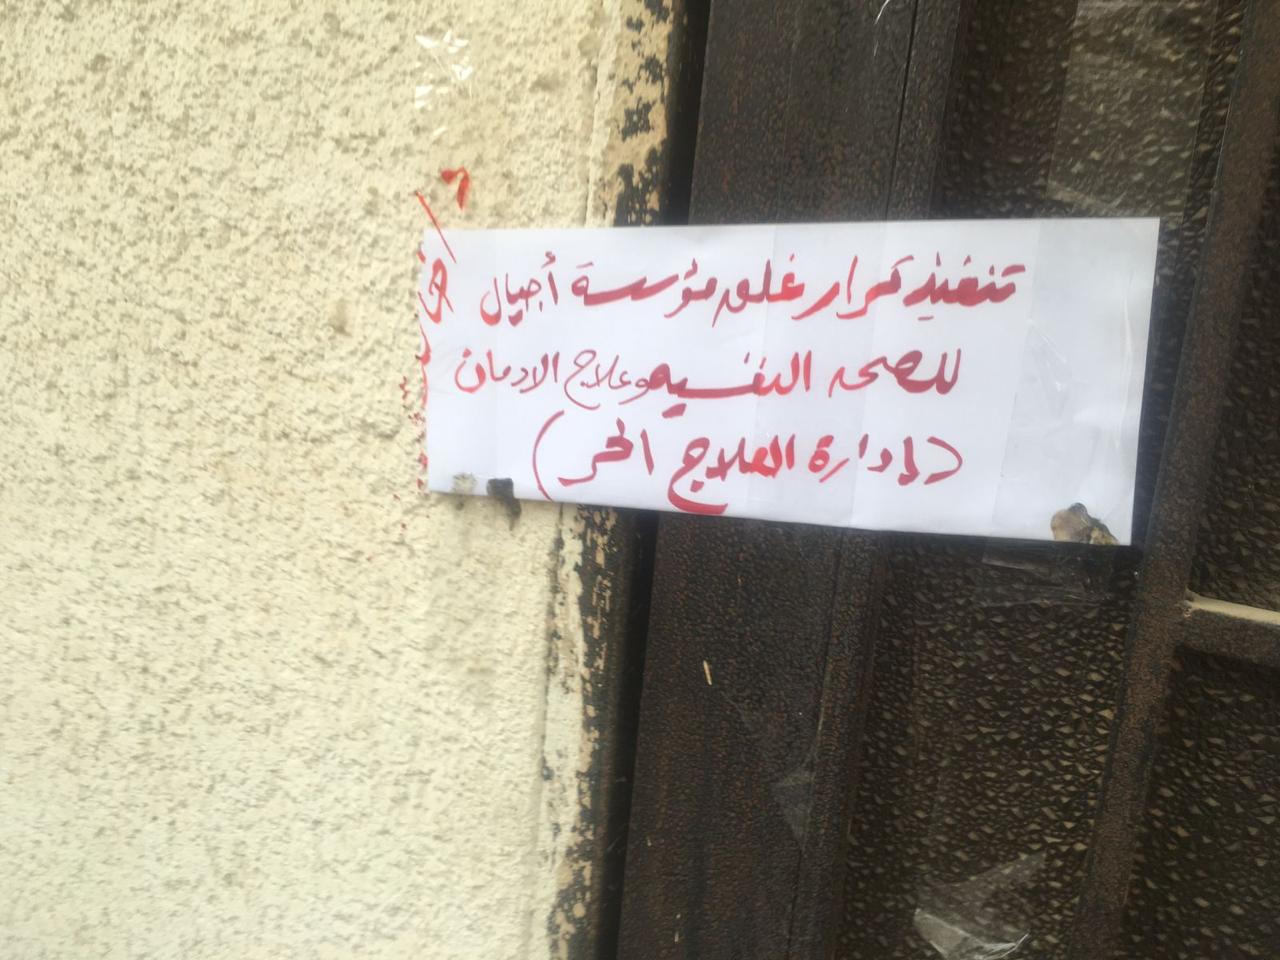 تنفيذ قرار غلق مؤسسة أجيال
للصحه النفسيه وعلاج الادمان
(إدارة العلاج الحر)